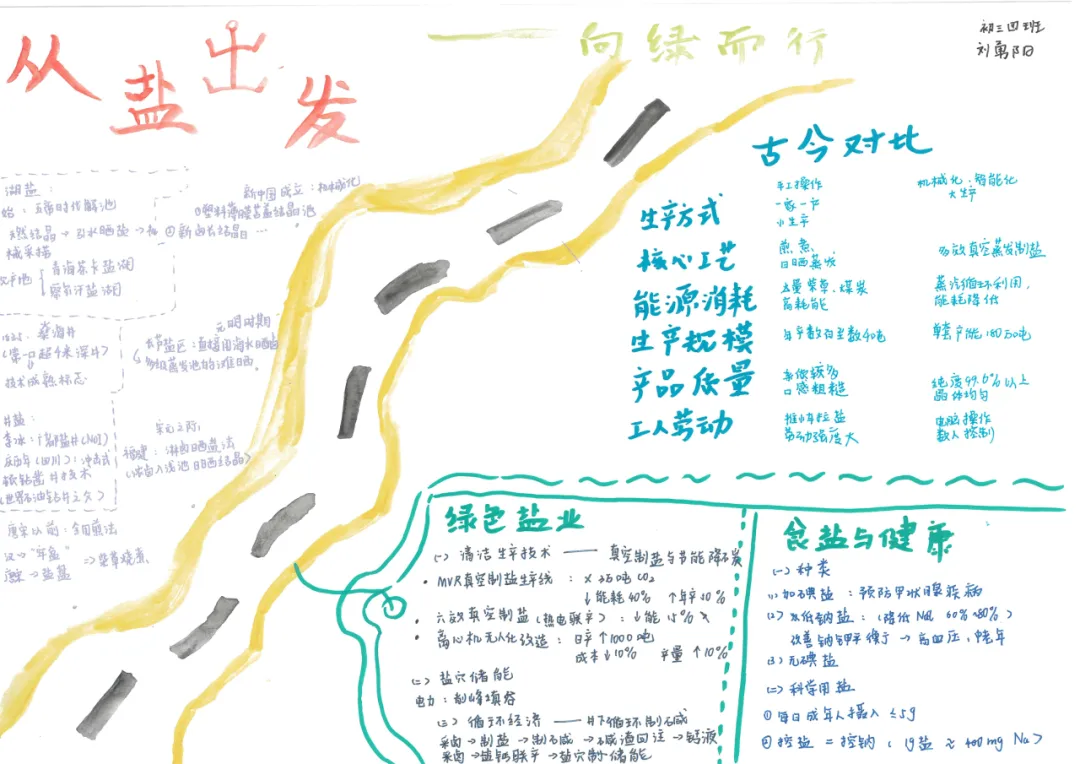 从盐出发
——向绿而行
初三四班
刘勇阳
湖盐：
始：五帝时代解池
天然结晶→引水晒盐→机
械采掘
青海茶卡盐湖
察尔汗盐湖
新中国成立：机械化
①塑料薄膜苫盖结晶池
②新卤长结晶 …
1835. 燊海井
(第一口超千米深井)
技术成熟标志
元明时期
长芦盐区：直接用海水晒卤
多级蒸发池的滩晒。
井盐：
李冰：广都盐井(NaCl)
庆历年(四川)：冲击式
顿钻凿井技术
(世界石油钻井之父)
宋元之际：
福建：淋卤晒盐法
(浓卤入浅池日晒结晶)
唐宋以前：全用煎法
汉→"牢盆"
=>柴草烧煮
古今对比
手工操作
一家一户
小生产
机械化、智能化
大生产
生产方式
核心工艺
煎、煮、
日晒蒸发
多效真空蒸发制盐
能源消耗
大量柴草、煤炭
高耗能
蒸汽循环利用，
能耗降低
生产规模
年产数百至数千吨
单套产能180万吨
产品质量
杂质较多
口感粗糙
纯度99.6%以上
晶体均匀
工人劳动
推车拉盐
劳动强度大
电脑操作
数人控制
绿色盐业
(一) 清洁生产技术 —— 真空制盐与节能降碳
· MVR真空制盐生产线：× 万吨CO₂
↓能耗40% ↑年产10%
· 六效真空制盐(热电联产)：↓能15%
· 离心机无人化改造：日产↑1000吨
成本↓10% 产量↑10%
(二) 盐穴储能
电力：削峰填谷
(三) 循环经济 —— 井下循环制碱
采卤→制盐→制碱→碱渣回注→钙液
采卤→盐钙联产→盐穴储能
食盐与健康
(一) 种类
(1) 加碘盐：预防甲状腺疾病
(2) 低钠盐：(降低NaCl 60%~80%)
改善钠钾平衡→高血压，老年
(3) 无碘盐
(二) 科学用盐
① 每日成年人摄入≤5g
② 控盐=控钠 (1g盐≈400mg Na)